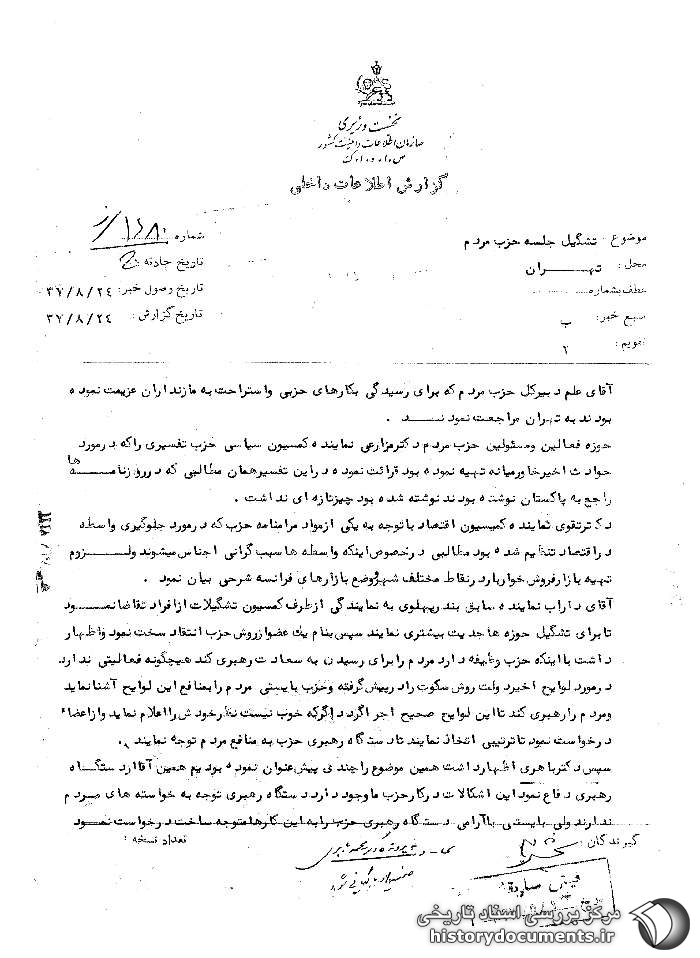 نخست وزیری
سازمان اطلاعات و امنیت کشور
س.ا.و.ا.ک
گزارش اطلاعات داخلی
موضوع : تشکیل جلسه حزب مردم
شماره
محل : تهــران
تاریخ حادثه :
عطف بشماره
تاریخ وصول خبر : ۳۷/۸/۲٤
منبع خبر : ب
تاریخ گزارش : ۳۷/۸/۲٤
تقویم : ۲
آقای علم دبیرکل حزب مردم که برای رسیدگی بکارهای حزبی واستراحت به مازندران عزیمت نموده
بودند به تهران مراجعت نمودنـــد .
حوزه فعالین ومسئولین حزب مردم دکترمزارعی نماینده کمسیون سیاسی حزب تفسیری راکه درمورد
حوادث اخیرخاورمیانه تهیه نموده بود قرائت نموده دراین تفسیرهمان مطالبی که درروزنامــه ها
راجع به پاکستان نوشته بودند نوشته شده بود چیزتازه ای نداشت .
دکترتقوی نماینده کمیسیون اقتصاد باتوجه به یکی ازمواد مرامنامه حزب که درمورد جلوگیری واسطه
دراقتصاد تنظیم شده بود مطالبی درخصوص اینکه واسطه ها سبب گرانی اجناس میشوند ولـــزوم
تهیه بازارفروش خواربار درنقاط مختلف شهرووضع بازارهای فرانسه شرحی بیان نمود .
آقای داراب نماینده سابق بندرپهلوی به نمایندگی ازطرف کمسیون تشکیلات ازافراد تقاضانمــود
تابرای تشکیل حوزه ها جدیت بیشتری نمایند سپس بنام یک عضوازروش حزب انتقاد سخت نمود واظهار
داشت بااینکه حزب وظیفه دارد مردم رابرای رسیدن به سعادت رهبری کند هیچگونه فعالیتی ندارد.
درمورد لوایح اخیردولت روش سکوت رادرپیش گرفته وحزب بایستی مردم رابمنافع این لوایح آشنانماید
ومردم رارهبری کند تااین لوایح صحیح اجراگردد واگرکه خوب نیست نظرخودش رااعلام نماید وازاعضاء
درخواست نمود تاترتیبی اتخاذ نمایند تادستگاه رهبری حزب به منافع مردم توجه نمایند .
سپس دکترباهری اظهارداشت همین موضوع راچندی پیش عنوان نموده بودیم همین آقاازدستگــاه
رهبری دفاع نمود این اشکالات درکارحزب ماوجود دارد دستگاه رهبری توجه به خواسته های مــردم
ندارند ولی بایستی باآرامی دستگاه رهبری حزب رابه این کارهامتوجه ساخت درخواست نمــود
گیرندگان :
تعداد نسخه :
مرکز بررسی اسناد تاریخی
historydocuments.ir